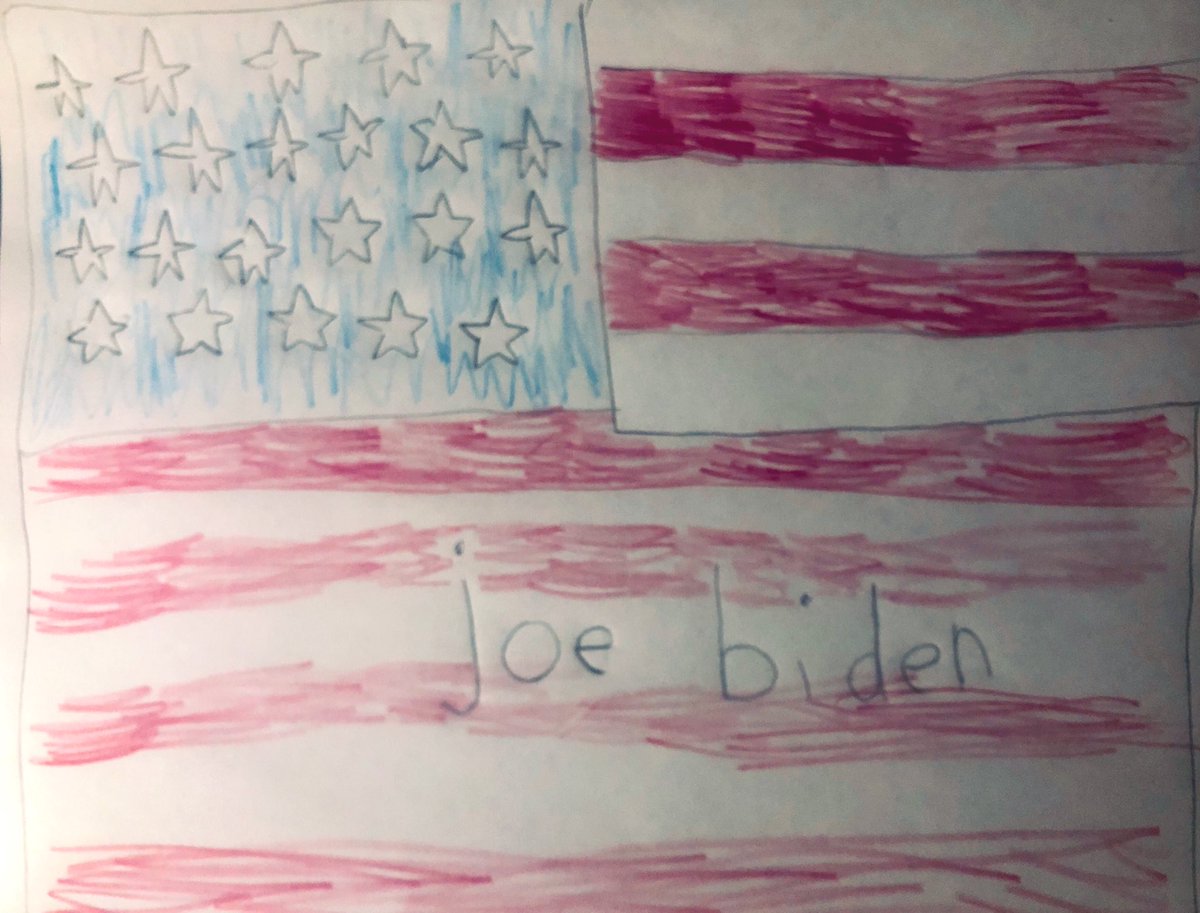 joe biden